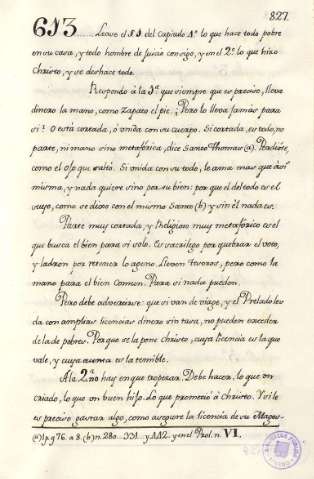 827.
613..... Lease el §.9. del Capitulo 1º. lo que hace todo pobre
en su casa, y todo hombre de juicio consigo, y en el 2º. lo que hizo
Christo, y se deshace todo.
Respondo á la 1ª. que siempre que es preciso, lleva
dinero la mano, como zapato el pie. ¿Pero lo lleva jamàs para
si? O està cortada, ò unida con su cuerpo. Si cortada, es todo, no
parte, ni mano sino metaforica, dice Santo Thomas (a). Pudrese,
como el ojo que saltò. Si unida con su todo, le ama mas que à si
misma, y nada quiere sino por su bien: por que el del todo es el
suyo, como se dixo con el mismo Santo (b) y sin èl nada es.
Parte muy cortada, y Religioso muy metaforico es el
que busca el bien para si solo. Es sacrilego por quebrar el voto,
y ladron por retener lo ageno. Lleven tesoros, pero como la
mano para el bien Comun. Para si nada pueden.
Pero debe advertirse: que si van de viage, y el Prelado les
da con amplias licencias dinero sin tasa, no pueden exceder
de la de pobres. Porque se la pone Christo, cuya licencia es la que
vale, y cuya cuenta es la temible.
A la 2ª. no hay en que tropezar. Debe hacer lo que un
criado, lo que un buen hijo. Lo que prometiò à Christo. Vè le
es preciso gastar algo, como asegure la licencia de su Mayor
(a) 1. p. q. 76. a. 8. (b) n. 280. 331. y 442. y en el Prol. n. VI.